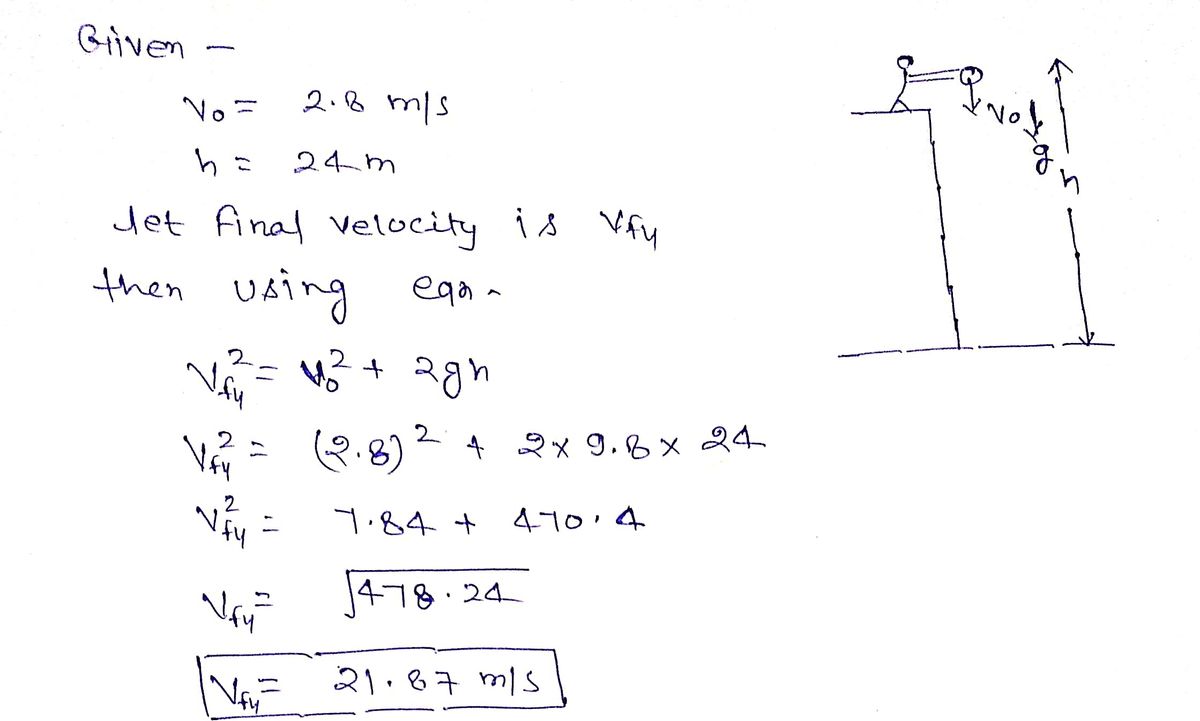 Given -
V₀ = 2.8 m/s
h = 24 m
Let final velocity is Vfy
then using eqn -
Vfy² = V₀² + 2gh
Vfy² = (2.8)² + 2 x 9.8 x 24
Vfy² = 7.84 + 470.4
Vfy = √478.24
Vfy = 21.87 m/s
V₀
g
h